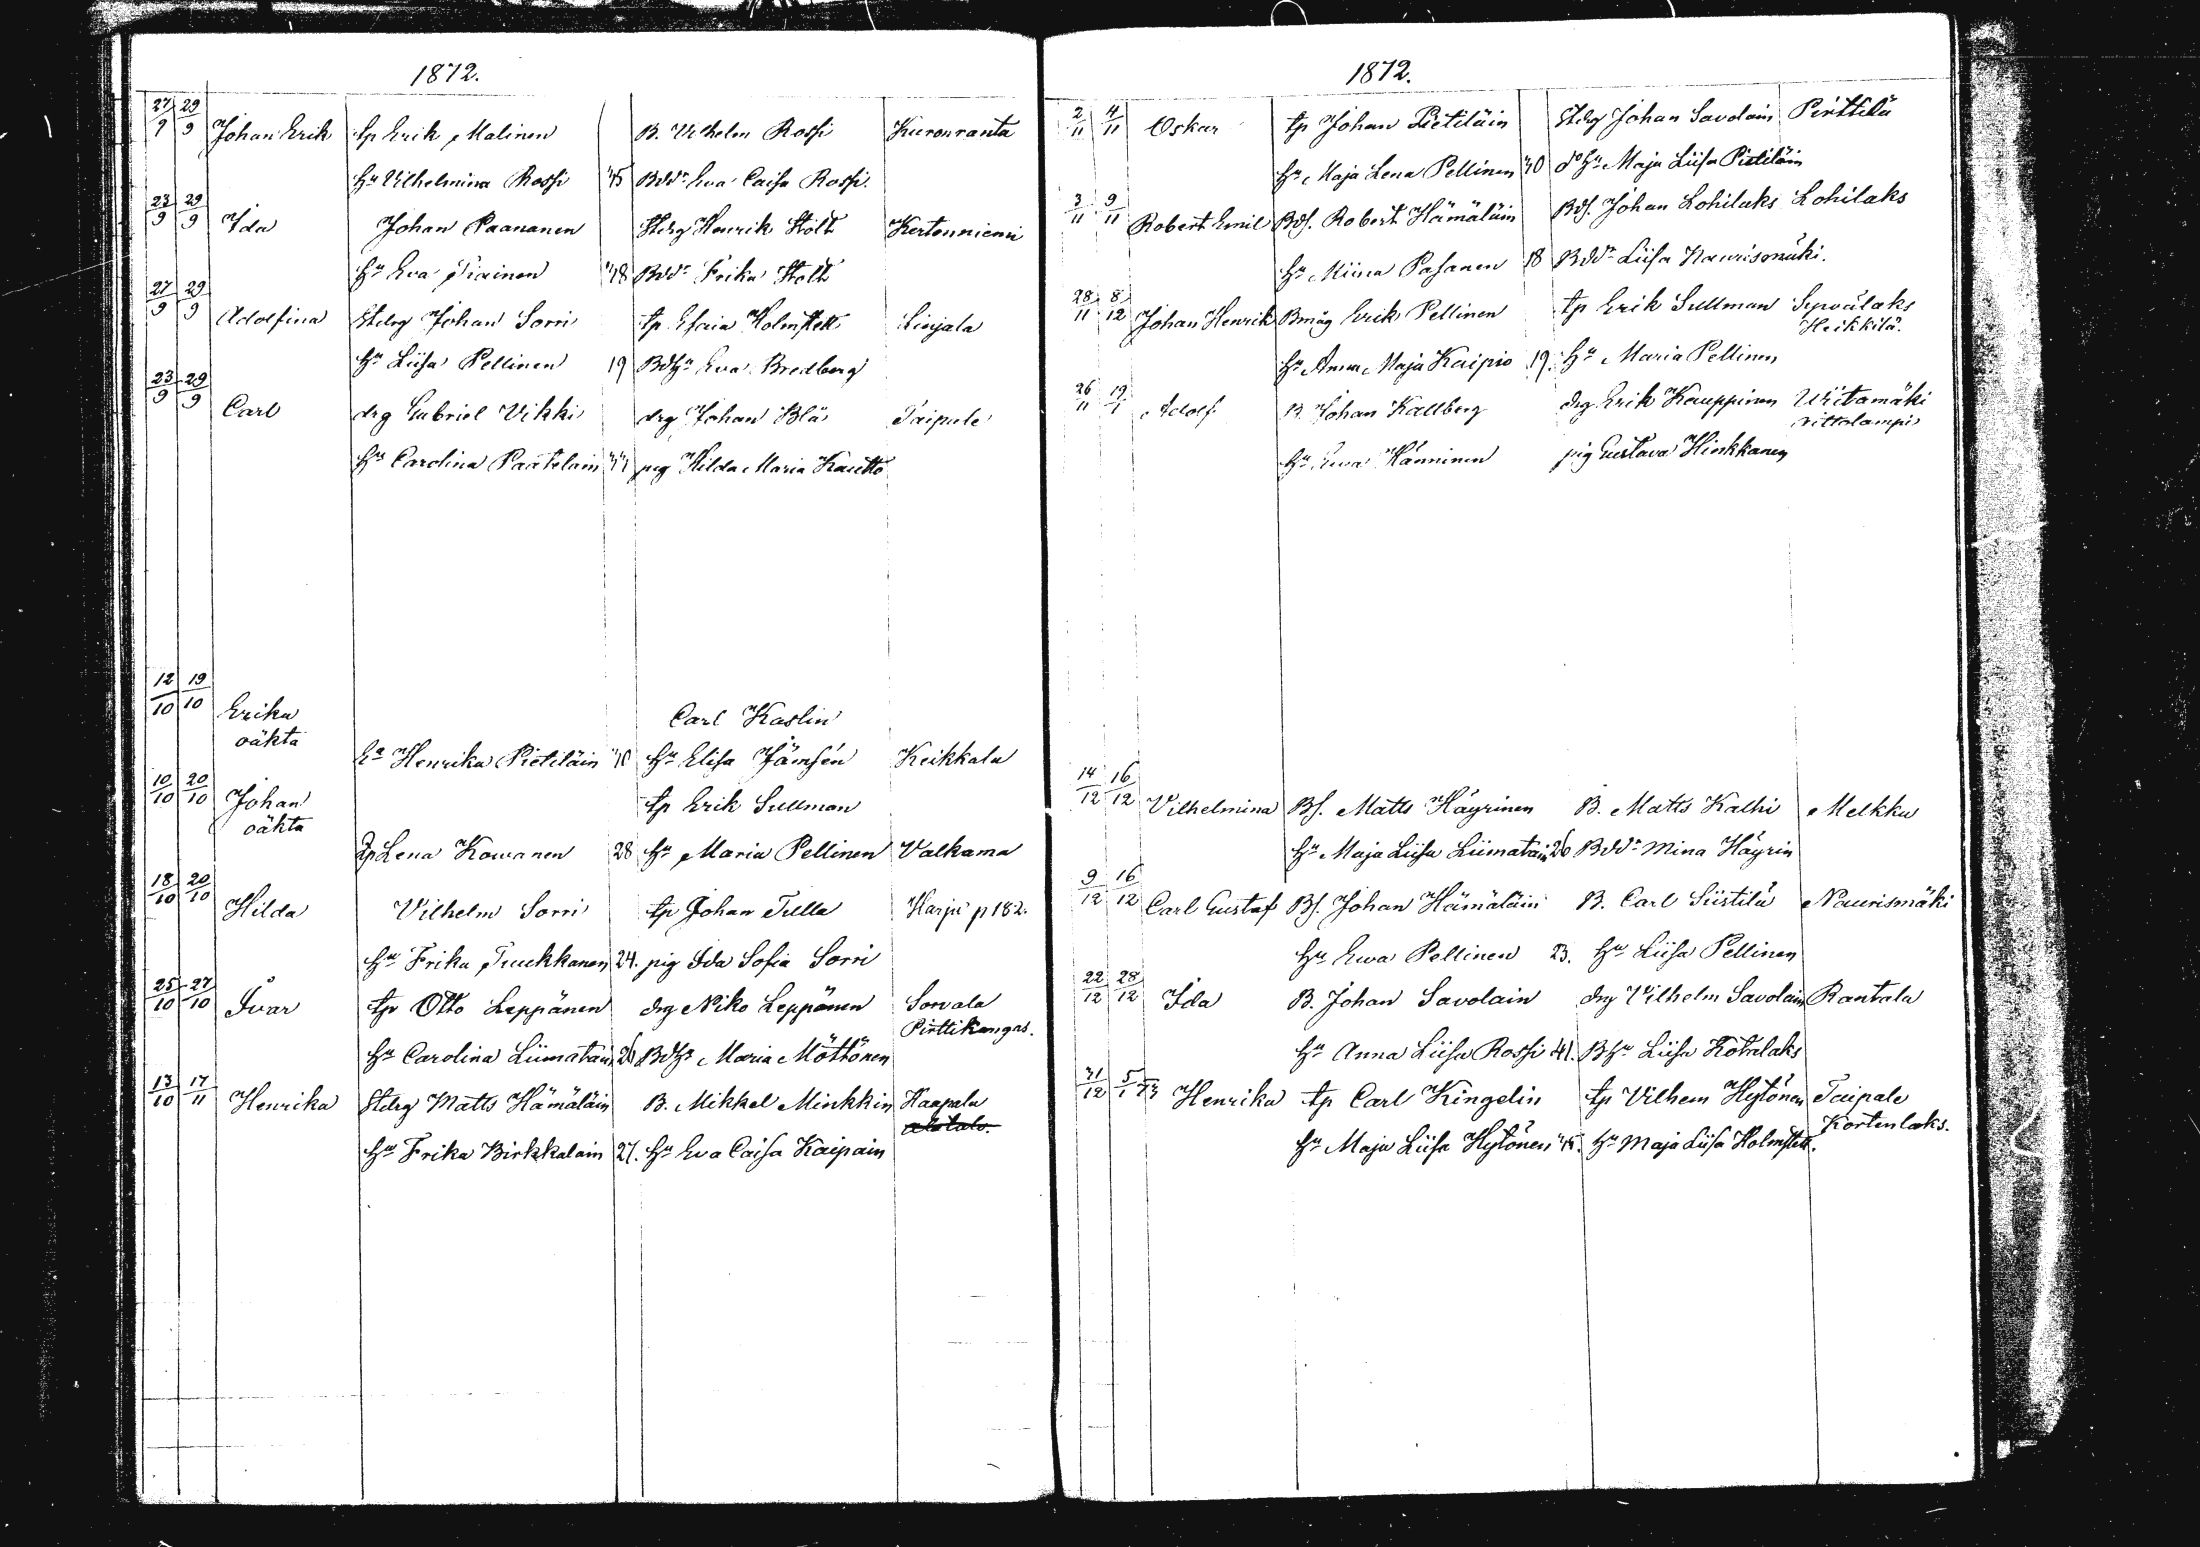 1872.
27/9 29/9 Johan Erik tp Erik Malinen B. Vilhelm Rossi Kuronranta
hu Vilhelmina Rossi 45 Bddr Eva Caisa Rossi.
23/9 29/9 Ida Johan Paananen Stdrg Henrik Stolt Kertonniemi
hu Eva Piainen 48 Bddr Frika Stolt
27/9 29/9 Adolfina Stdrg Johan Sorri tp Esaia Holmstett Linjala
hu Liisa Pellinen 19 Bdhu Eva Bredberg
23/9 29/9 Carl drg Gabriel Vikki drg Johan Blå Taipale
hu Carolina Paatelain pig Hilda Maria Kautto
12/10 19/10 Erika Carl Kaslin
oäkta
Henrika Pietiläin hu Elisa Jämsén Keikkala
10/10 20/10 Johan tp Erik Sullman
oäkta
Lena Kowanen 28 hu Maria Pellinen Valkama
18/10 20/10 Hilda Vilhelm Sorri tp Johan Tulla Harju p 182.
hu Frika Tuukkanen 24. pig Ida Sofia Sorri
25/10 27/10 Ivar tp Otto Leppänen drg Niko Leppänen Sorvala
Pirttikangas.
hu Carolina Liimatain 26 Bdhu Maria Möttönen
13/10 17/11 Henrika Stdrg Matts Hämäläin B. Mikkel Minkkin Haapala
hu Frika Birkkalain 27. hu Eva Caisa Kaipain
1872.
2/11 4/11 Oskar tp Johan Pietiläin Stdrg Johan Savolain Pirttilä
hu Maja Lena Pellinen 40 do hu Maja Liisa Pietiläin
3/11 9/11 Robert Emil Bds. Robert Hämäläin Bds. Johan Lohilaks Lohilaks
hu Miina Pasanen 18 Bddr Liisa Naurismäki.
28/11 8/12 Johan Henrik Bmåg Erik Pellinen tp Erik Sullman Syvälaks
Heikkilä.
hu Anna Maja Kaipio 19. hu Maria Pellinen
26/11 19/1 Adolf B. Johan Kallberg drg Erik Kauppinen Uitamäki
hu Ewa Känninen pig Gustava Hinkkanen
14/12 16/12 Vilhelmina Bs. Matts Häyrinen B. Matts Kalhi Melkku
hu Maja Liisa Liimatain 26 Bddr Mina Häyrin
9/12 16/12 Carl Gustaf Bs. Johan Hämäläin B. Carl Siistilä Naurismäki
hu Ewa Pellinen 23. hu Liisa Pellinen
22/12 28/12 Ida B. Johan Savolain drg Vilhelm Savolain Rantala
hu Anna Liisa Rossi 41. Bhu Liisa Kotalaks
31/12 5/1 73 Henrika tp Carl Kingelin tp Vilhem Hytönen Taipale
Kortenlaks.
hu Maja Liisa Hytönen hu Maja Liisa Holmstett.